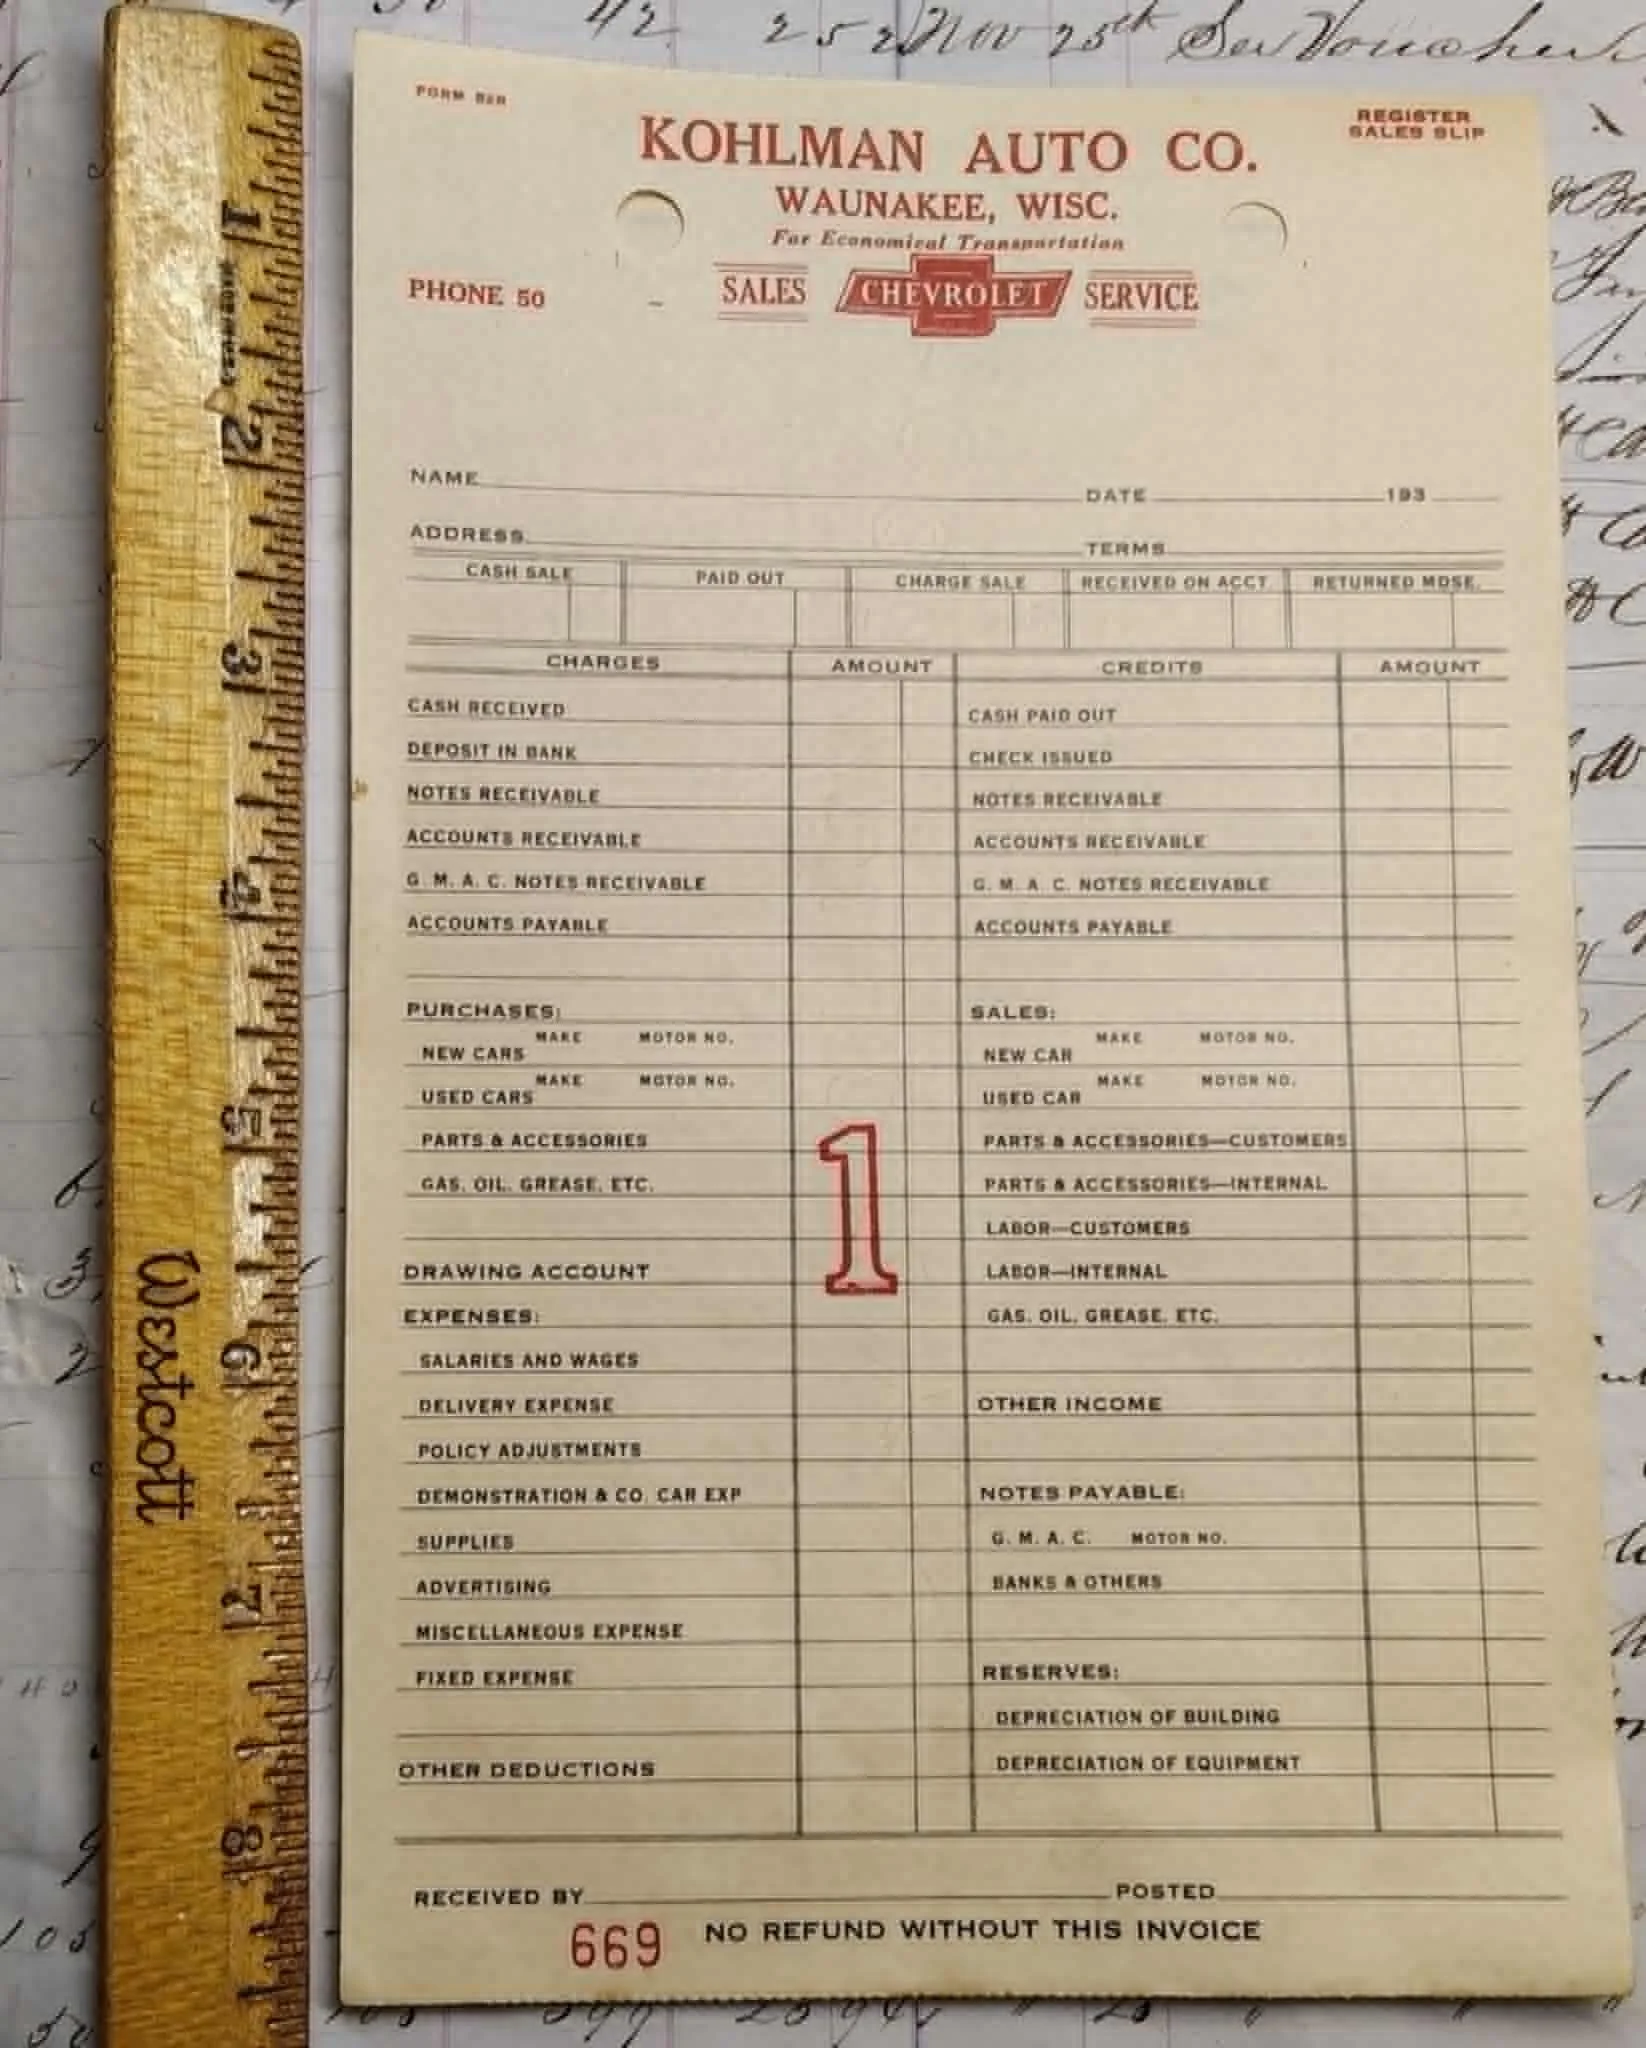 FORM
REGISTER
SALES SLIP
KOHLMAN AUTO CO.
WAUNAKEE, WISC.
For Economical Transportation
PHONE 50
SALES CHEVROLET SERVICE
NAME DATE 193
ADDRESS TERMS
CASH SALE PAID OUT CHARGE SALE RECEIVED ON ACCT RETURNED MDSE.
CHARGES AMOUNT CREDITS AMOUNT
CASH RECEIVED CASH PAID OUT
DEPOSIT IN BANK CHECK ISSUED
NOTES RECEIVABLE NOTES RECEIVABLE
ACCOUNTS RECEIVABLE ACCOUNTS RECEIVABLE
G. M. A. C. NOTES RECEIVABLE G. M. A. C. NOTES RECEIVABLE
ACCOUNTS PAYABLE ACCOUNTS PAYABLE
PURCHASES: SALES:
MAKE MOTOR NO. MAKE MOTOR NO.
NEW CARS NEW CAR
MAKE MOTOR NO. MAKE MOTOR NO.
USED CARS USED CAR
PARTS & ACCESSORIES PARTS & ACCESSORIES—CUSTOMERS
GAS, OIL, GREASE, ETC. PARTS & ACCESSORIES—INTERNAL
1
LABOR—CUSTOMERS
DRAWING ACCOUNT LABOR—INTERNAL
EXPENSES: GAS, OIL, GREASE, ETC.
SALARIES AND WAGES
DELIVERY EXPENSE OTHER INCOME
POLICY ADJUSTMENTS
DEMONSTRATION & CO. CAR EXP NOTES PAYABLE:
SUPPLIES G. M. A. C. MOTOR NO.
ADVERTISING BANKS & OTHERS
MISCELLANEOUS EXPENSE
FIXED EXPENSE RESERVES:
DEPRECIATION OF BUILDING
OTHER DEDUCTIONS DEPRECIATION OF EQUIPMENT
RECEIVED BY POSTED
669 NO REFUND WITHOUT THIS INVOICE
Westcott
1
2
3
4
5
6
7
8
252 Nov 25th See Voucher